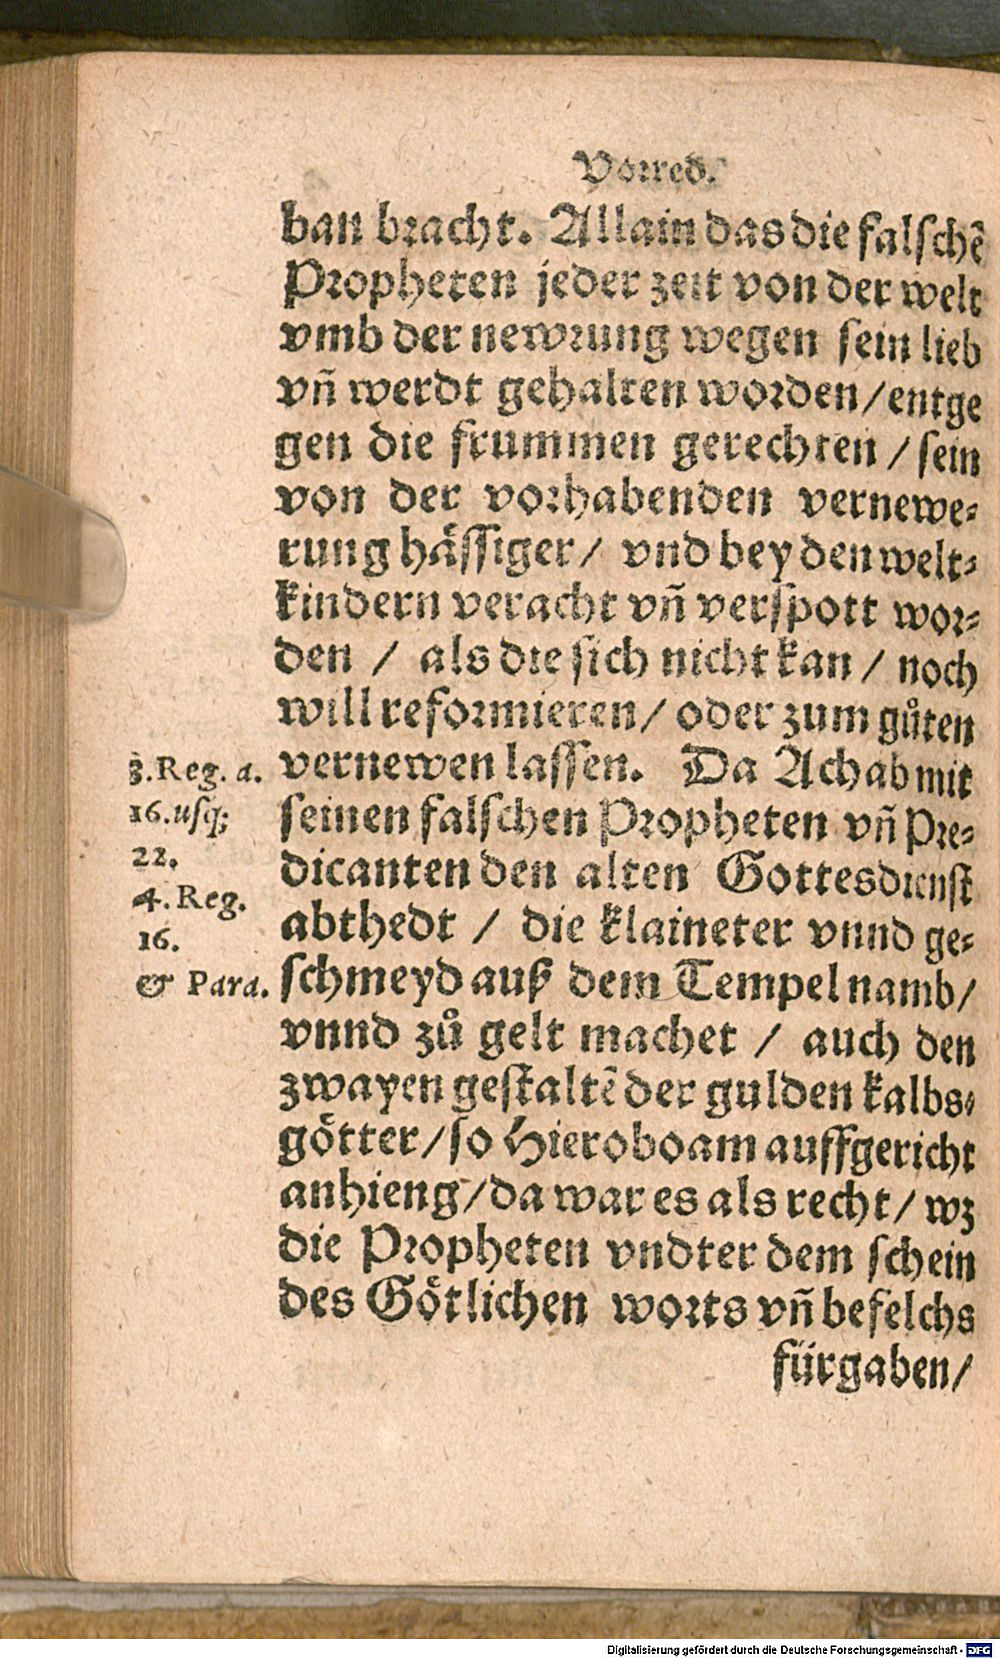 Vorred.
ban bracht. Allain das die falschẽ
Propheten jeder zeit von der welt
vmb der newrung wegen sein lieb
vñ werdt gehalten worden / entge
gen die frummen gerechten / sein
von der vorhabenden vernewe-
rung hässiger / vnd bey den welt-
kindern veracht vñ verspott wor-
den / als die sich nicht kan / noch
will reformieren / oder zum gůten
vernewen lassen. Da Achab mit
seinen falschen Propheten vñ Pre-
dicanten den alten Gottesdienst
abthedt / die klaineter vnnd ge-
schmeyd auß dem Tempel namb /
vnnd zů gelt machet / auch den
zwayen gestaltẽ der gulden kalbs-
götter / so Hieroboam auffgericht
anhieng / da war es als recht / wz
die Propheten vndter dem schein
des Götlichen worts vñ befelchs
fürgaben /
3. Reg. a.
16. usq;
22.
4. Reg.
16.
& Para.
Digitalisierung gefördert durch die Deutsche Forschungsgemeinschaft - DFG